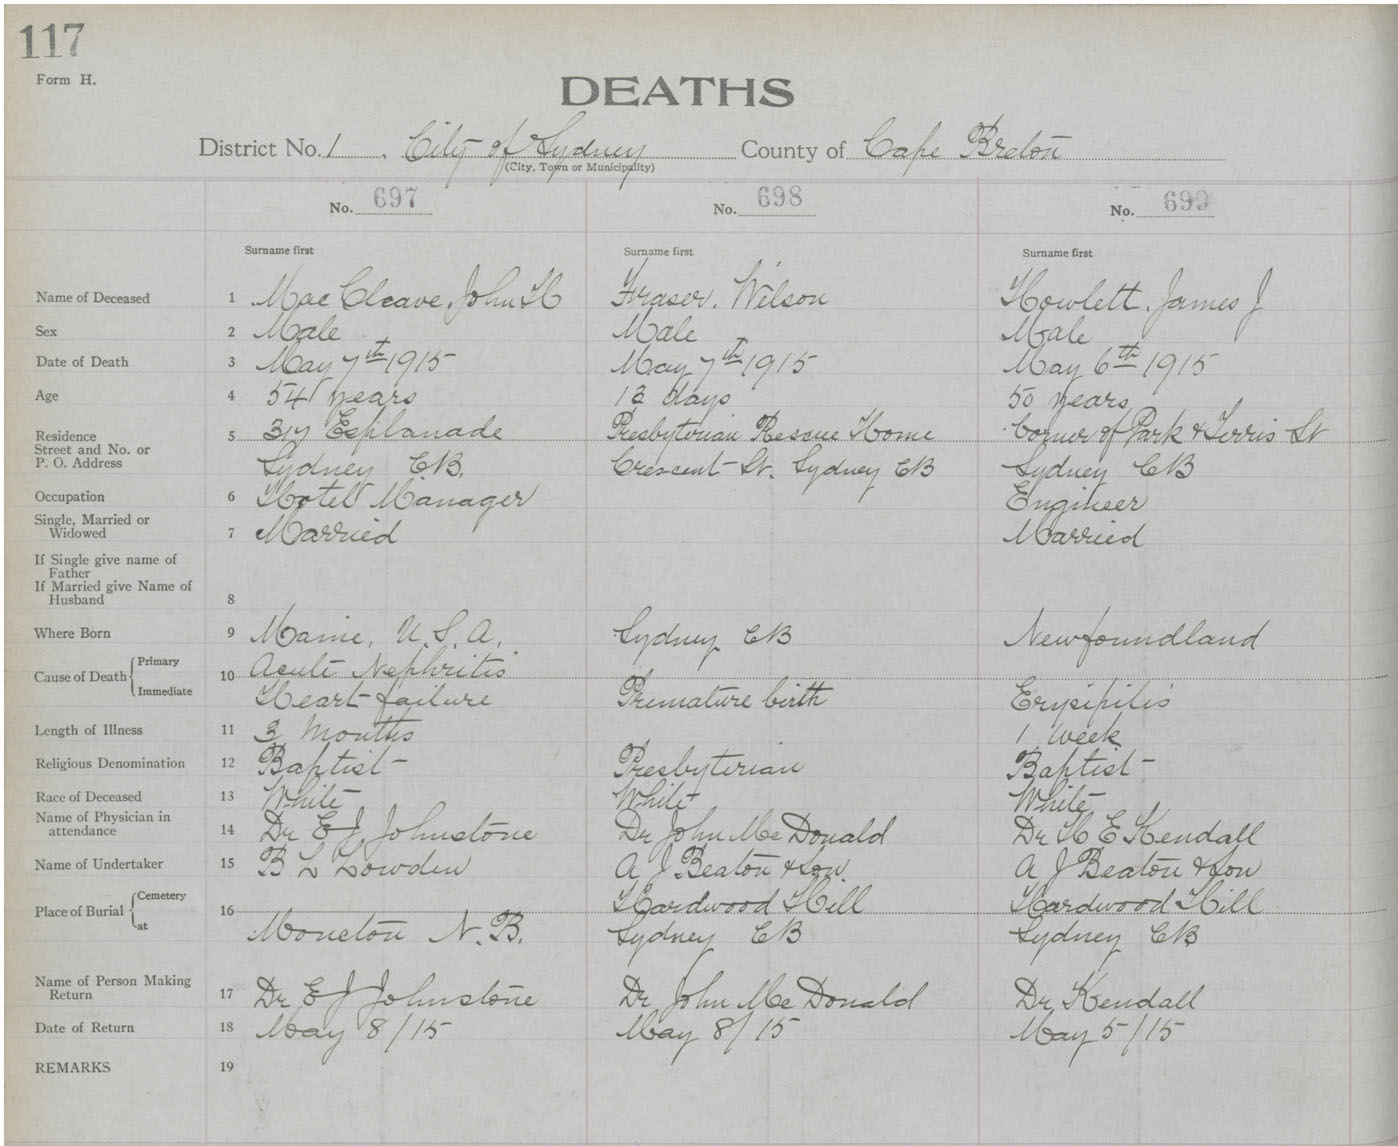 117
Form H.
DEATHS
District No. 1. City of Sydney County of Cape Breton
(City, Town or Municipality)
No. 697 No. 698 No. 699
Surname first Surname first Surname first
Name of Deceased 1 MacCleave, John H Fraser, Wilson Howlett, James J
Sex 2 Male Male Male
Date of Death 3 May 7th 1915 May 7th 1915 May 6th 1915
Age 4 54 years 12 days 50 years
Residence 5 317 Esplanade Presbyterian Rescue Home Corner of Park & Terris St
Street and No. or
P. O. Address Sydney CB. Crescent St. Sydney CB Sydney CB
Occupation 6 Hotel Manager Engineer
Single, Married or
Widowed 7 Married Married
If Single give name of
Father
If Married give Name of
Husband 8
Where Born 9 Maine, U.S.A. Sydney CB Newfoundland
Cause of Death Primary 10 Acute Nephritis
Immediate Heart failure Premature birth Erysipilis
Length of Illness 11 3 Months 1 Week
Religious Denomination 12 Baptist Presbyterian Baptist
Race of Deceased 13 White White White
Name of Physician in
attendance 14 Dr E J Johnstone Dr John McDonald Dr H E Kendall
Name of Undertaker 15 B L Lowden A J Beaton & Son. A J Beaton & Son
Place of Burial Cemetery 16 Hardwood Hill Hardwood Hill
at Moncton N.B. Sydney CB Sydney CB
Name of Person Making
Return 17 Dr E J Johnstone Dr John McDonald Dr Kendall
Date of Return 18 May 8/15 May 8/15 May 5/15
REMARKS 19